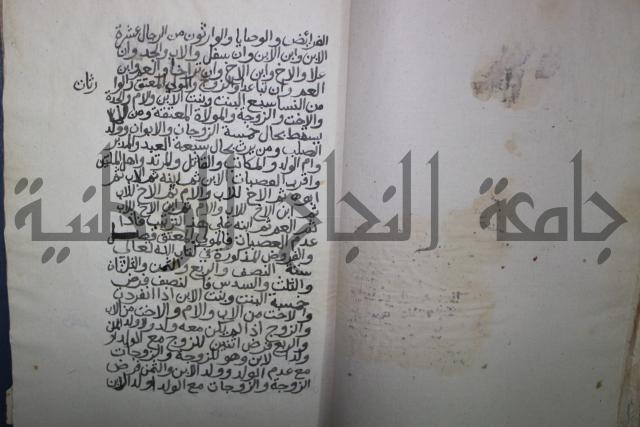 الفرائض والوصايا والوارثون من الرجال عشرة
الابن وابن الابن وان سفل والاب والجد وان
علا والاخ وابن الاخ وان تراخا والعم وابن
العم وان تباعد والزوج والمولي المعتق والوا
رثات
من النسا سبع البنت وبنت الابن والام والجدة
والاخت والزوجة والمولاة المعتقة ومن لا
يسقط بحال خمسة الزوجان والابوان وولد
الصلب ومن لا يرث بحال سبعة العبد والمدبر
وام الولد والمكاتب والقاتل والمرتد واهل
واقرب العصبات الابن ثم ابنه ثم الاب ثم
ابوه ثم الاخ للاب والام ثم الاخ للاب
ثم ابن الاخ للاب والام ثم ابن الاخ للاب
ثم العم ثم ابنه
عدم العصبات فالمولي المعتق
والفروض المذكورة في كتاب الله تعالى
ستة النصف والربع والثمن والثلثان
والثلث والسدس فالنصف فرض
خمسة البنت وبنت الابن اذا انفردت
والاخت من الاب والام والاخت من الاب
والزوج اذا لم يكن معه ولد ولا ولد ابن
والربع فرض اثنين للزوج مع الولد او
ولد الابن وهو للزوجة والزوجات
مع عدم الولد وولد الابن والثمن فرض
الزوجة والزوجات مع الولد او ولد الابن
جامعة النجاح الوطنية